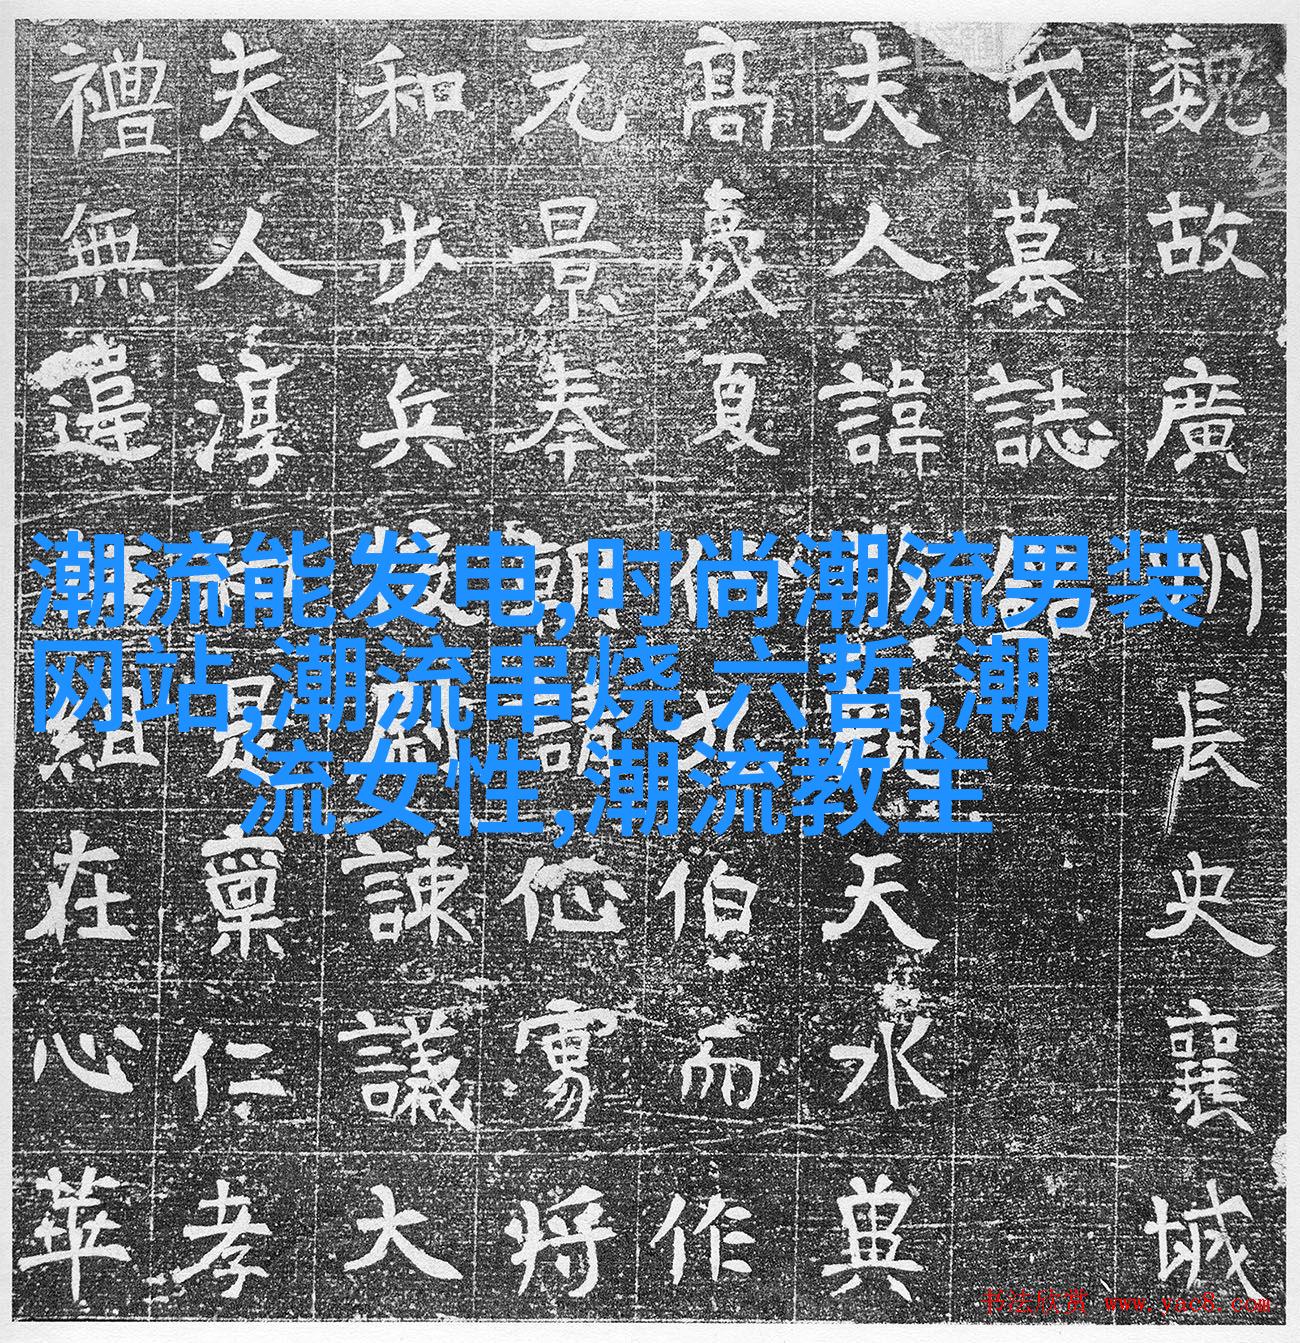 魏故廣州長史襄城
氏墓誌銘
夫人諱天水典
高夏伯而作
元景奉朝請将
和步兵校尉諫議大
夫人淳和是稟仁孝
禮無違組在心華
潮流能发电,时尚潮流男装
网站,潮流串烧 六哲,潮
流女性,潮流教主
书法欣赏 www.yac8.com